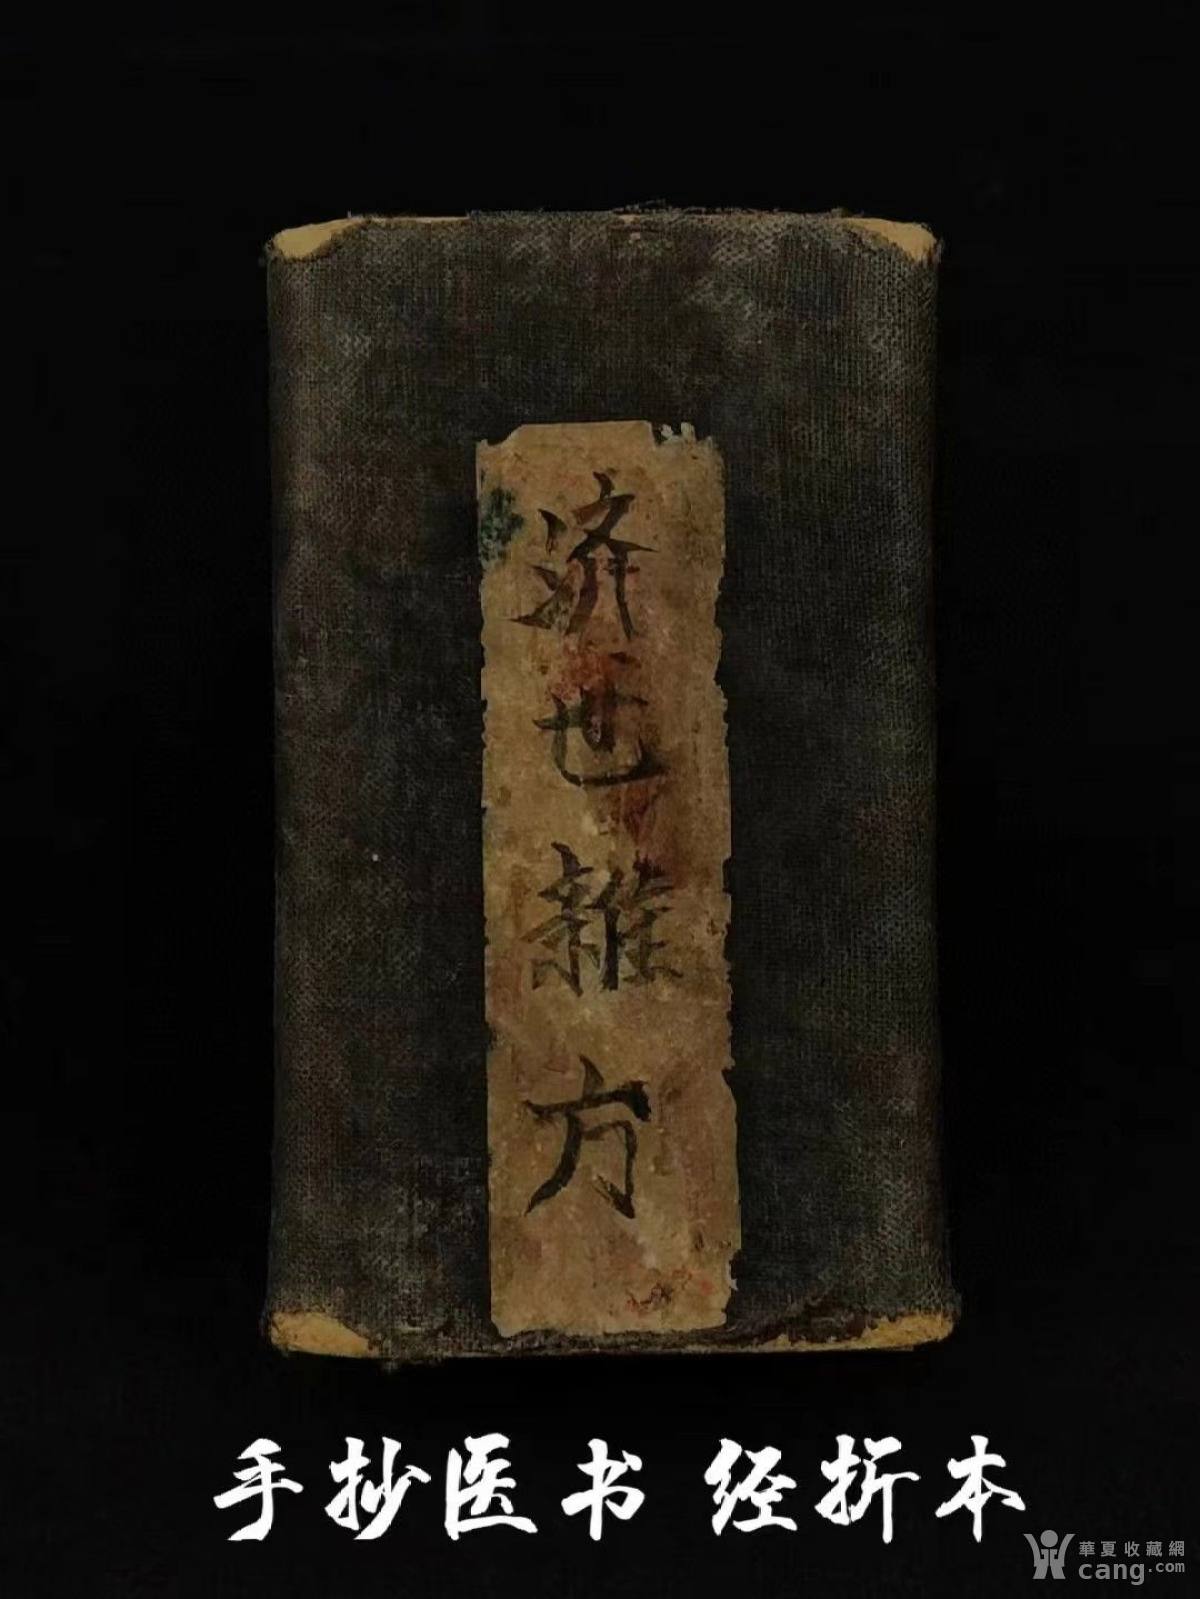 济世雜方
手抄医书 经折本
華夏收藏網
cang.com